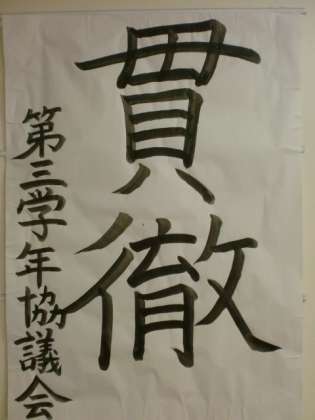 貫徹
第三学年協議会